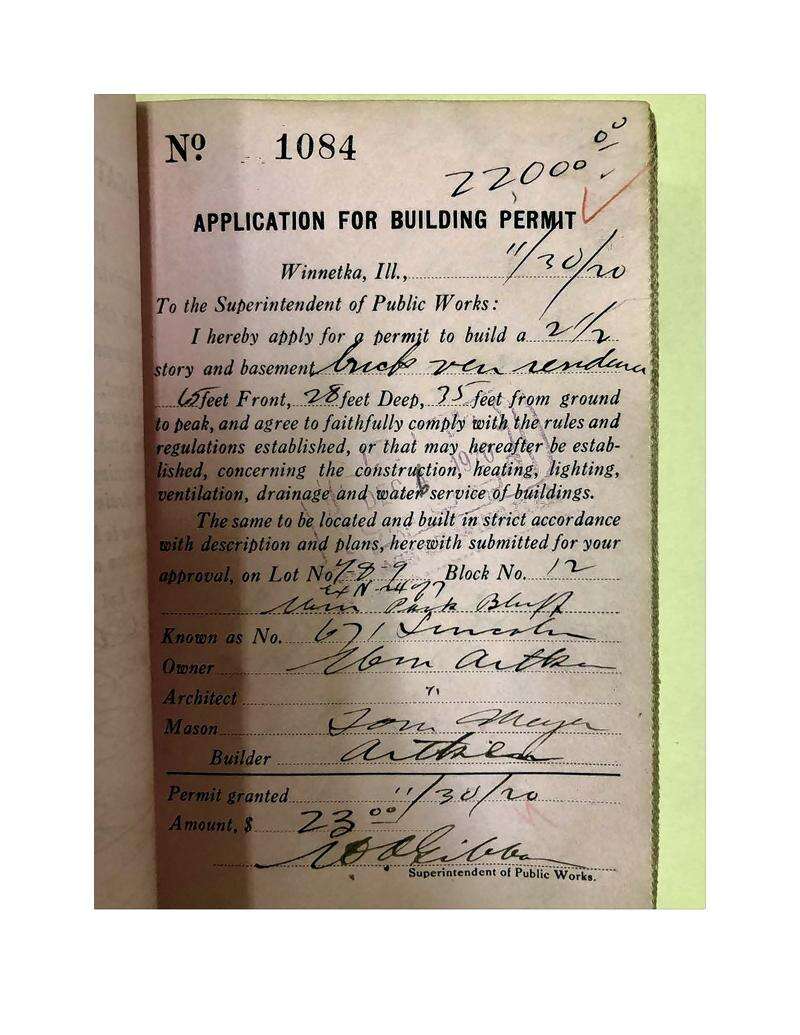 Nº 1084
22000 00
APPLICATION FOR BUILDING PERMIT
Winnetka, Ill., 11/30/20
To the Superintendent of Public Works:
I hereby apply for a permit to build a 2 1/2
story and basement brick ven residence
65 feet Front, 28 feet Deep, 35 feet from ground
to peak, and agree to faithfully comply with the rules and
regulations established, or that may hereafter be estab-
lished, concerning the construction, heating, lighting,
ventilation, drainage and water service of buildings.
DEC 1920
The same to be located and built in strict accordance
with description and plans, herewith submitted for your
approval, on Lot No 7-8-9 Block No. 12
Ex N
Park Bluff
Known as No. 671 Lincoln
Owner Wm Aitken
Architect "
Mason Tom Meyer
Builder Aitken
Permit granted 11/30/20
Amount, $ 23 00
Gibbs
Superintendent of Public Works.